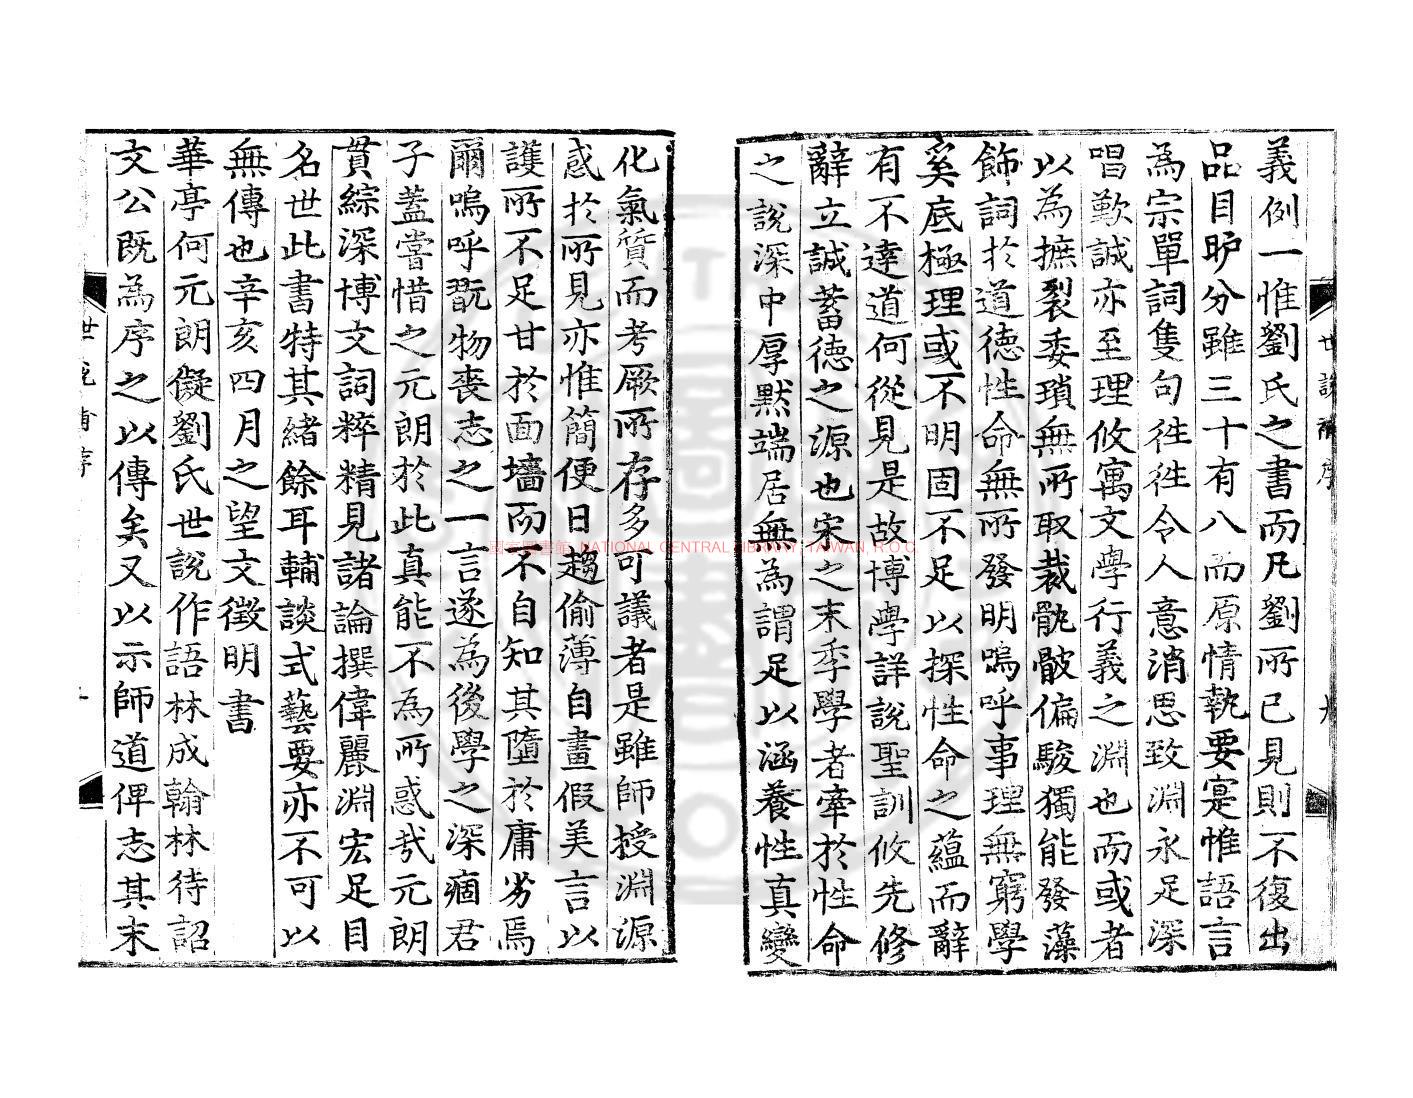 義例一惟劉氏之書而凡劉所已見則不復出
品目昈分雖三十有八而原情執要寔惟語言
為宗單詞隻句徃徃令人意消思致淵永足深
唱歎誠亦至理攸寓文學行義之淵也而或者
以為摭裂委瑣無所取裁骩骳偏駿獨能發藻
飾詞於道徳性命無所發明嗚呼事理無窮學
奚底極理或不明固不足以探性命之蘊而辭
有不達道何從見是故博學詳說聖訓攸先修
辭立誠蓄徳之源也宋之末季學者牽於性命
之說深中厚默端居無為謂足以涵養性真變
化氣質而考厥所存多可議者是雖師授淵源
惑於所見亦惟簡便日趨偷薄自畫假美言以
護所不足甘於面墻而不自知其墮於庸劣焉
爾嗚呼翫物喪志之一言遂為後學之深痼君
子蓋嘗惜之元朗於此真能不為所惑哉元朗
貫綜深博文詞粹精見諸論撰偉麗淵宏足目
名世此書特其緒餘耳輔談式藝要亦不可以
無傳也辛亥四月之望文徵明書
華亭何元朗儗劉氏世說作語林成翰林待詔
文公既為序之以傳矣又以示師道俾志其末
世說補序
國家圖書館 NATIONAL CENTRAL LIBRARY, TAIWAN, R.O.C.